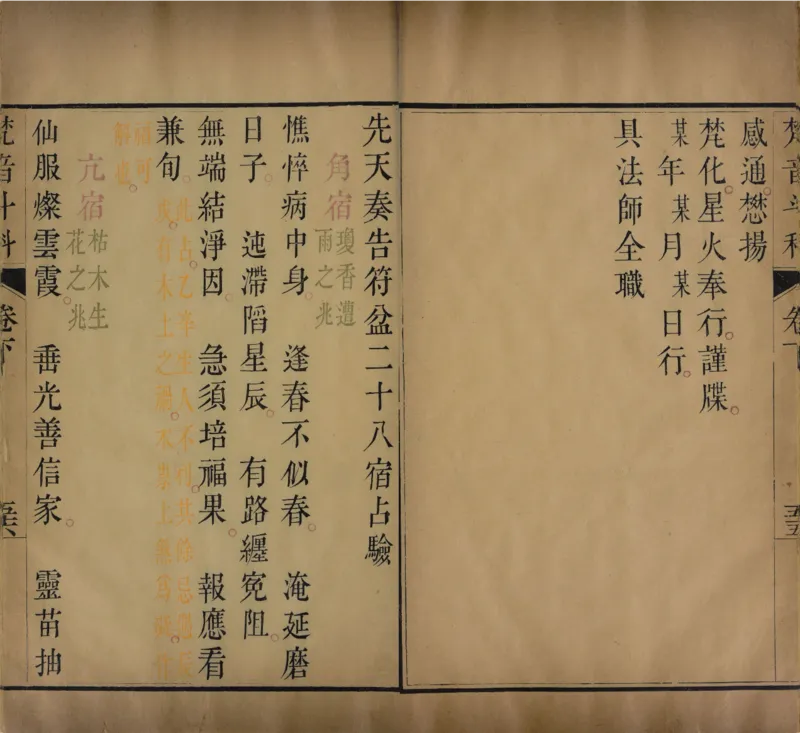 感通。懋揚
梵化。星火奉行。謹牒。
某年某月某日行。
具法師全職
先天奏告符盆二十八宿占驗
角宿
瓊香遭
雨之兆
憔悴病中身。逢春不似春。淹延磨
日子。迍滯䧟星辰。有路纏寃阻。
無端結淨因。急須培福果。報應看
兼旬。
亢宿
枯木生
花之兆
仙服燦雲霞。垂光善信家。靈苗抽
梵音斗科
卷下
五五